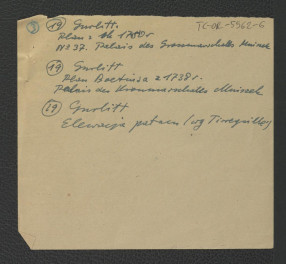 TG-OR-5962-6
19 Gurlitt.
Plan z 1740 r.
No 37. Palais des Grossmarschalles Mniszek
19 Gurlitt
Plan Boetiusa z 1738 r.
Palais des Kronmarschalles Mniszek
19 Gurlitt
Elewacja pałacu (wg Tirregaille)